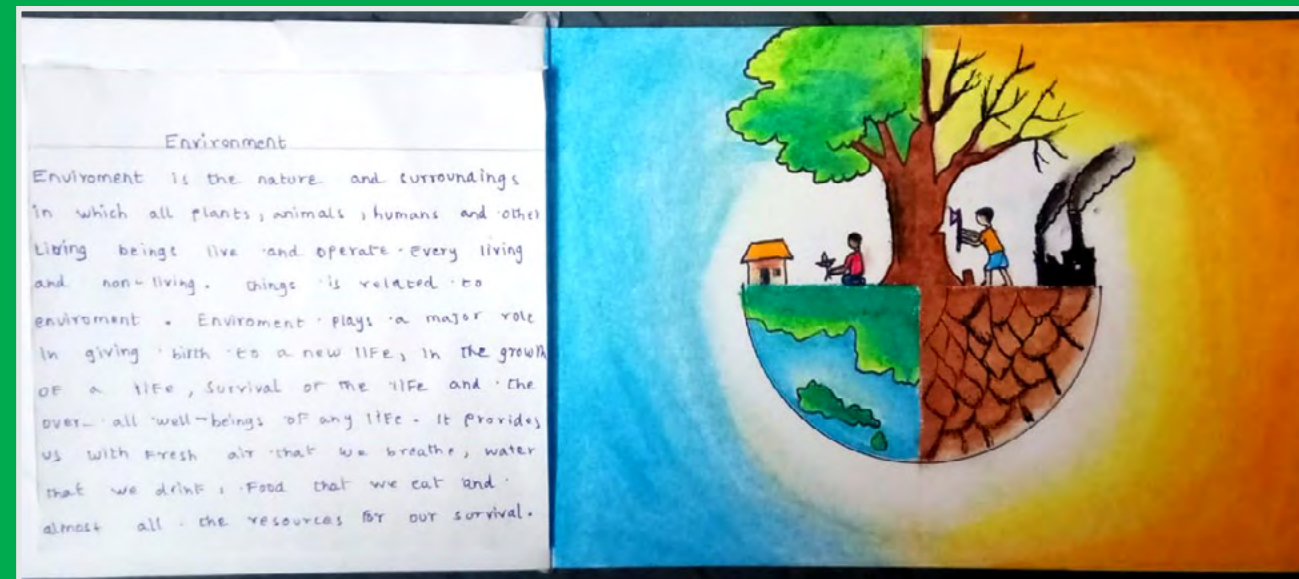 Environment
Enviroment is the nature and surroundings
in which all plants, animals, humans and other
Living beings live and operate. Every living
and non-living. things is related to
enviroment. Enviroment plays a major role
in giving birth to a new life, in the growth
of a life, survival of the life and the
over-all well-beings of any life. It provides
us with fresh air that we breathe, water
that we drink, Food that we eat and
almost all the resources for our survival.